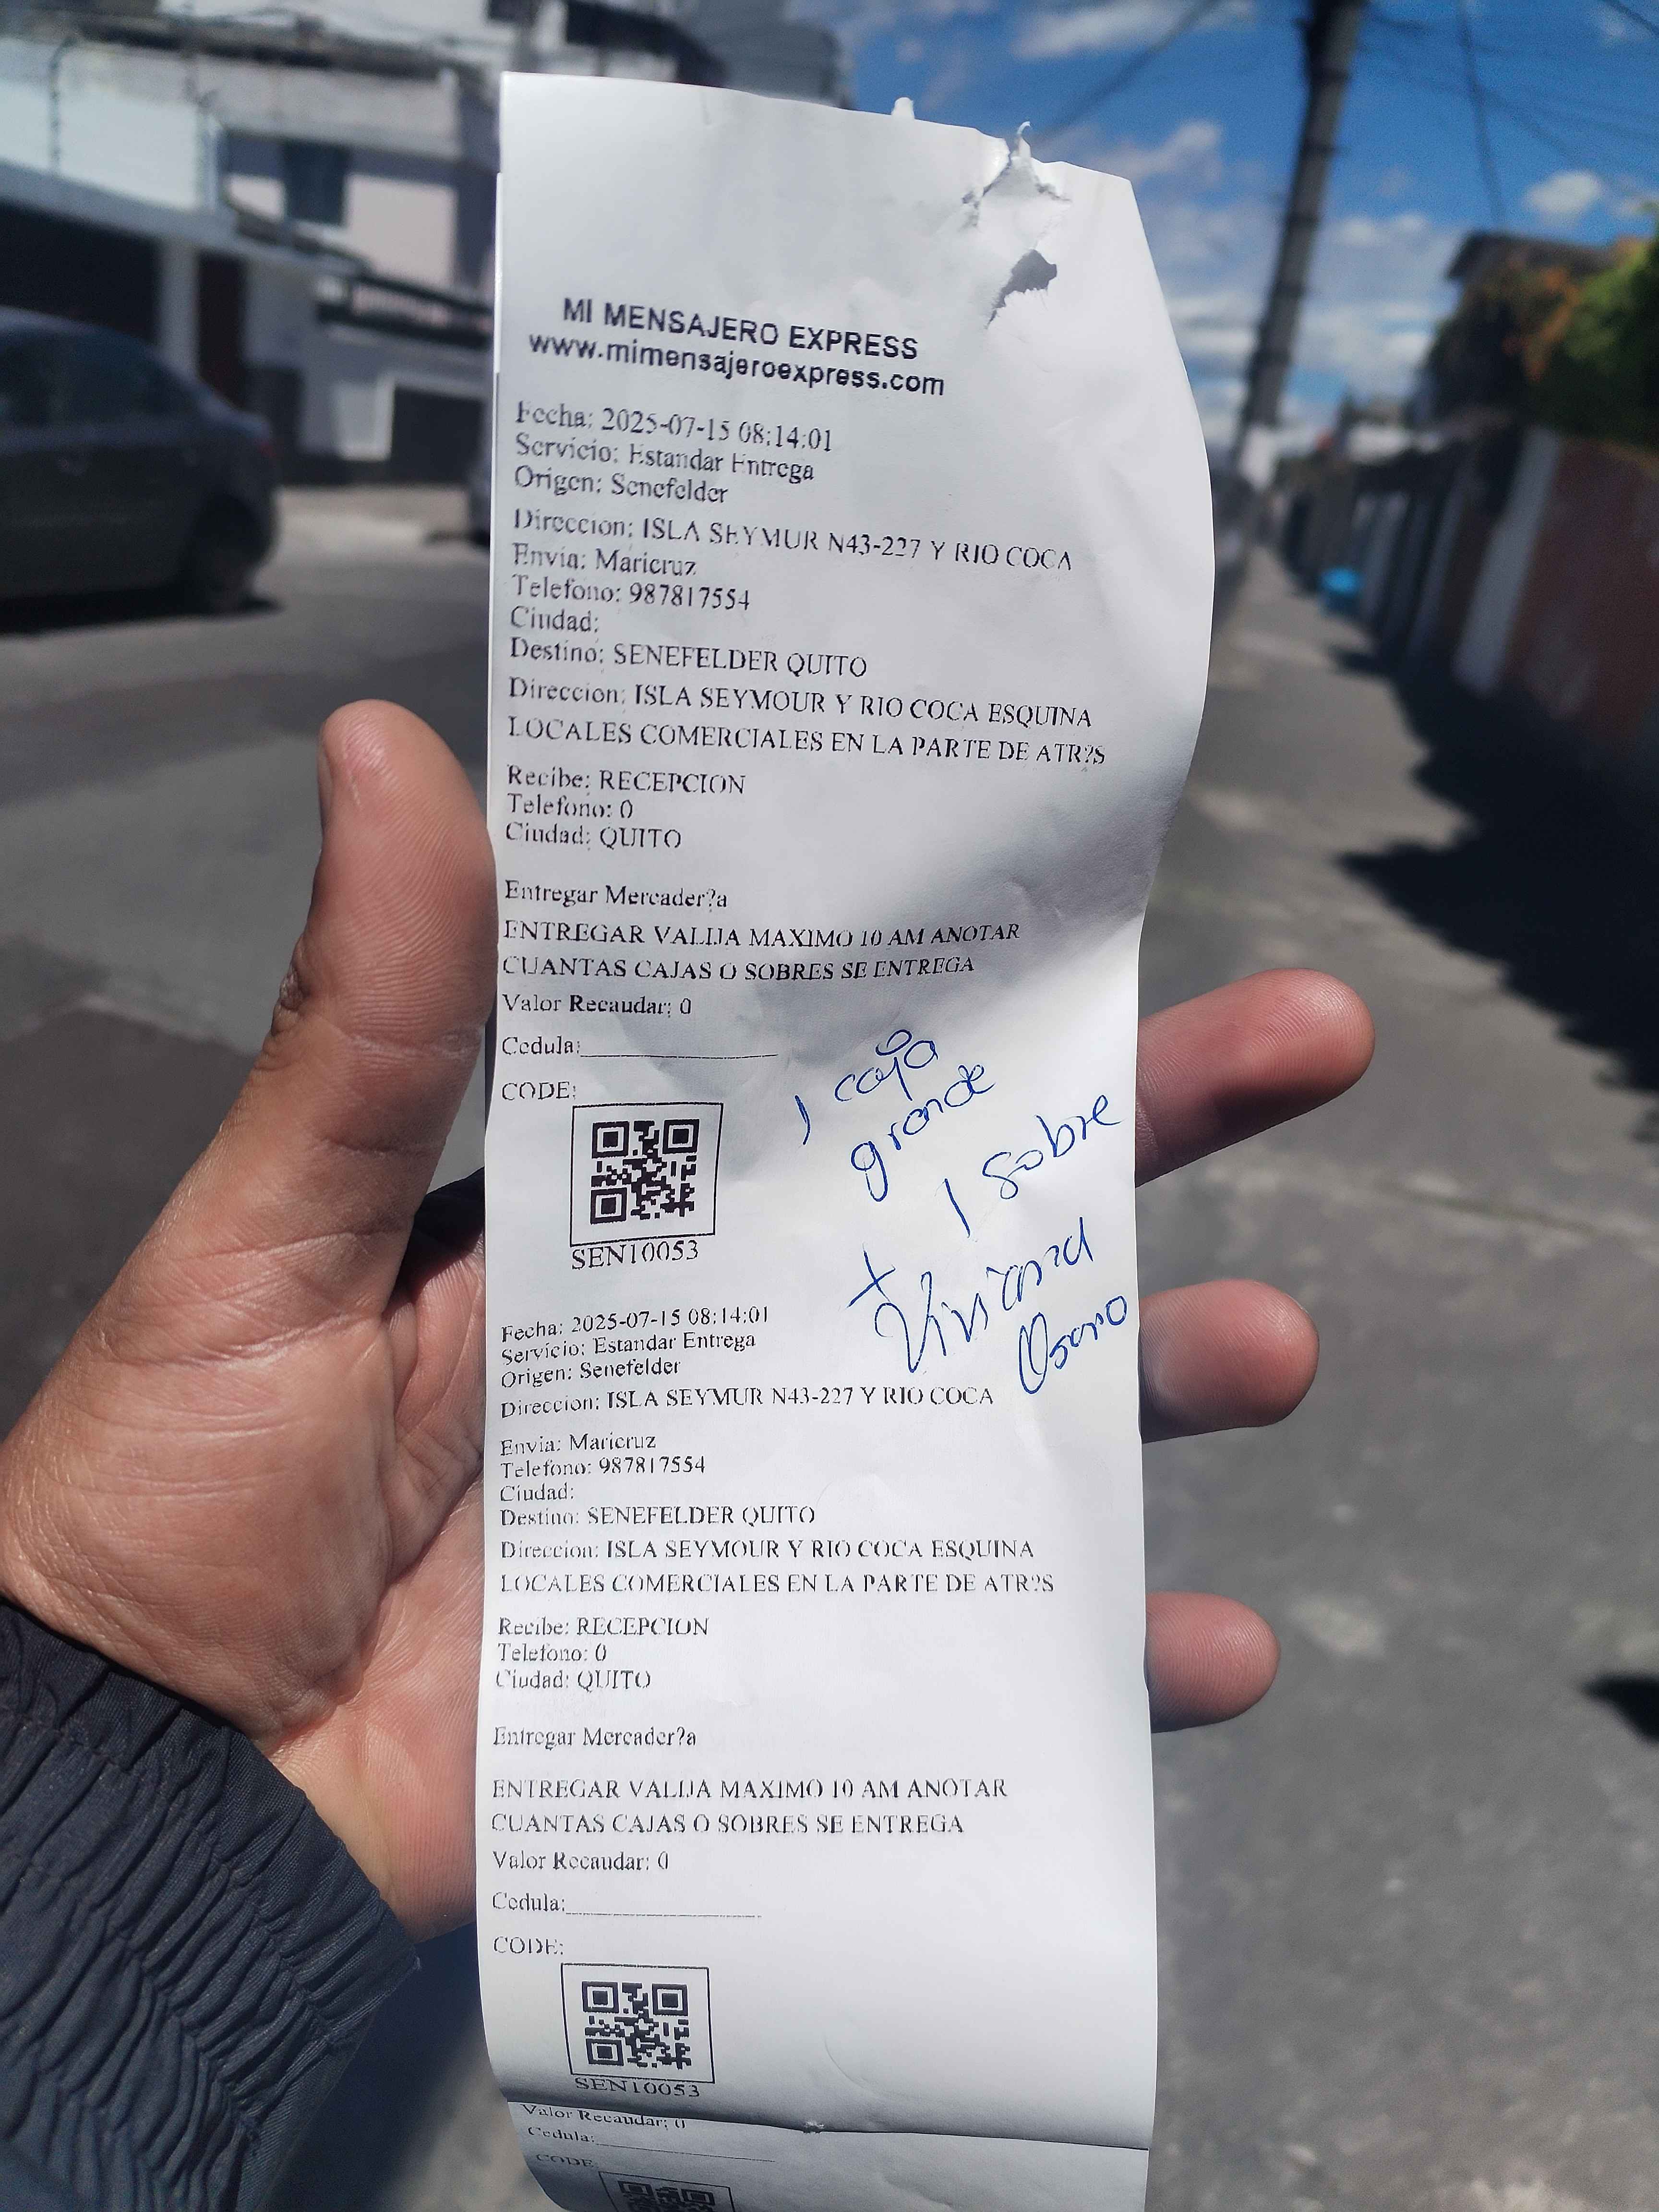 MI MENSAJERO EXPRESS
www.mimensajeroexpress.com
Fecha: 2025-07-15 08:14:01
Servicio: Estandar Entrega
Origen: Senefelder
Direccion: ISLA SEYMUR N43-227 Y RIO COCA
Envia: Maricruz
Telefono: 987817554
Ciudad:
Destino: SENEFELDER QUITO
Direccion: ISLA SEYMOUR Y RIO COCA ESQUINA
LOCALES COMERCIALES EN LA PARTE DE ATR?S
Recibe: RECEPCION
Telefono: 0
Ciudad: QUITO
Entregar Mercader?a
ENTREGAR VALIJA MAXIMO 10 AM ANOTAR
CUANTAS CAJAS O SOBRES SE ENTREGA
Valor Recaudar: 0
Cedula:
CODE:
SEN10053
1 caja
grande
1 sobre
Viviana
Fecha: 2025-07-15 08:14:01
Servicio: Estandar Entrega
Origen: Senefelder
Direccion: ISLA SEYMUR N43-227 Y RIO COCA
Envia: Maricruz
Telefono: 987817554
Ciudad:
Destino: SENEFELDER QUITO
Direccion: ISLA SEYMOUR Y RIO COCA ESQUINA
LOCALES COMERCIALES EN LA PARTE DE ATR?S
Recibe: RECEPCION
Telefono: 0
Ciudad: QUITO
Entregar Mercader?a
ENTREGAR VALIJA MAXIMO 10 AM ANOTAR
CUANTAS CAJAS O SOBRES SE ENTREGA
Valor Recaudar: 0
Cedula:
CODE:
SEN10053
Valor Recaudar: 0
Cedula:
CODE: